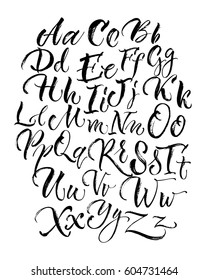 Aa Cc Bb
Dd Ee Ff Gg
Hh Ii Jj Kk
Ll Mm Nn Oo
Pp Qq Rr Ss Tt
Uu Vv Ww
Xx Yy Zz
shutterstock.com · 604731464